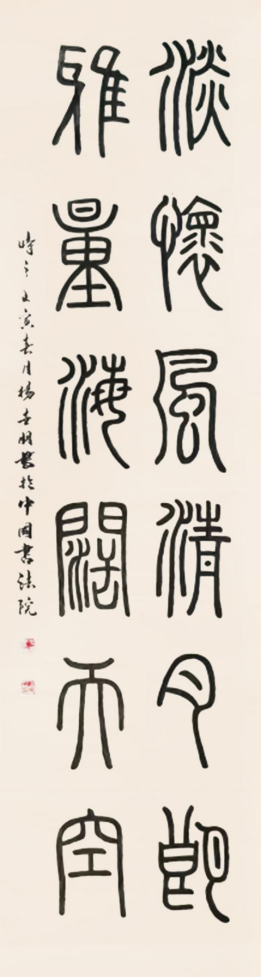 淡懷風清月朗
雅量海闊天空
時壬寅春月楊世朋書於中國書法院